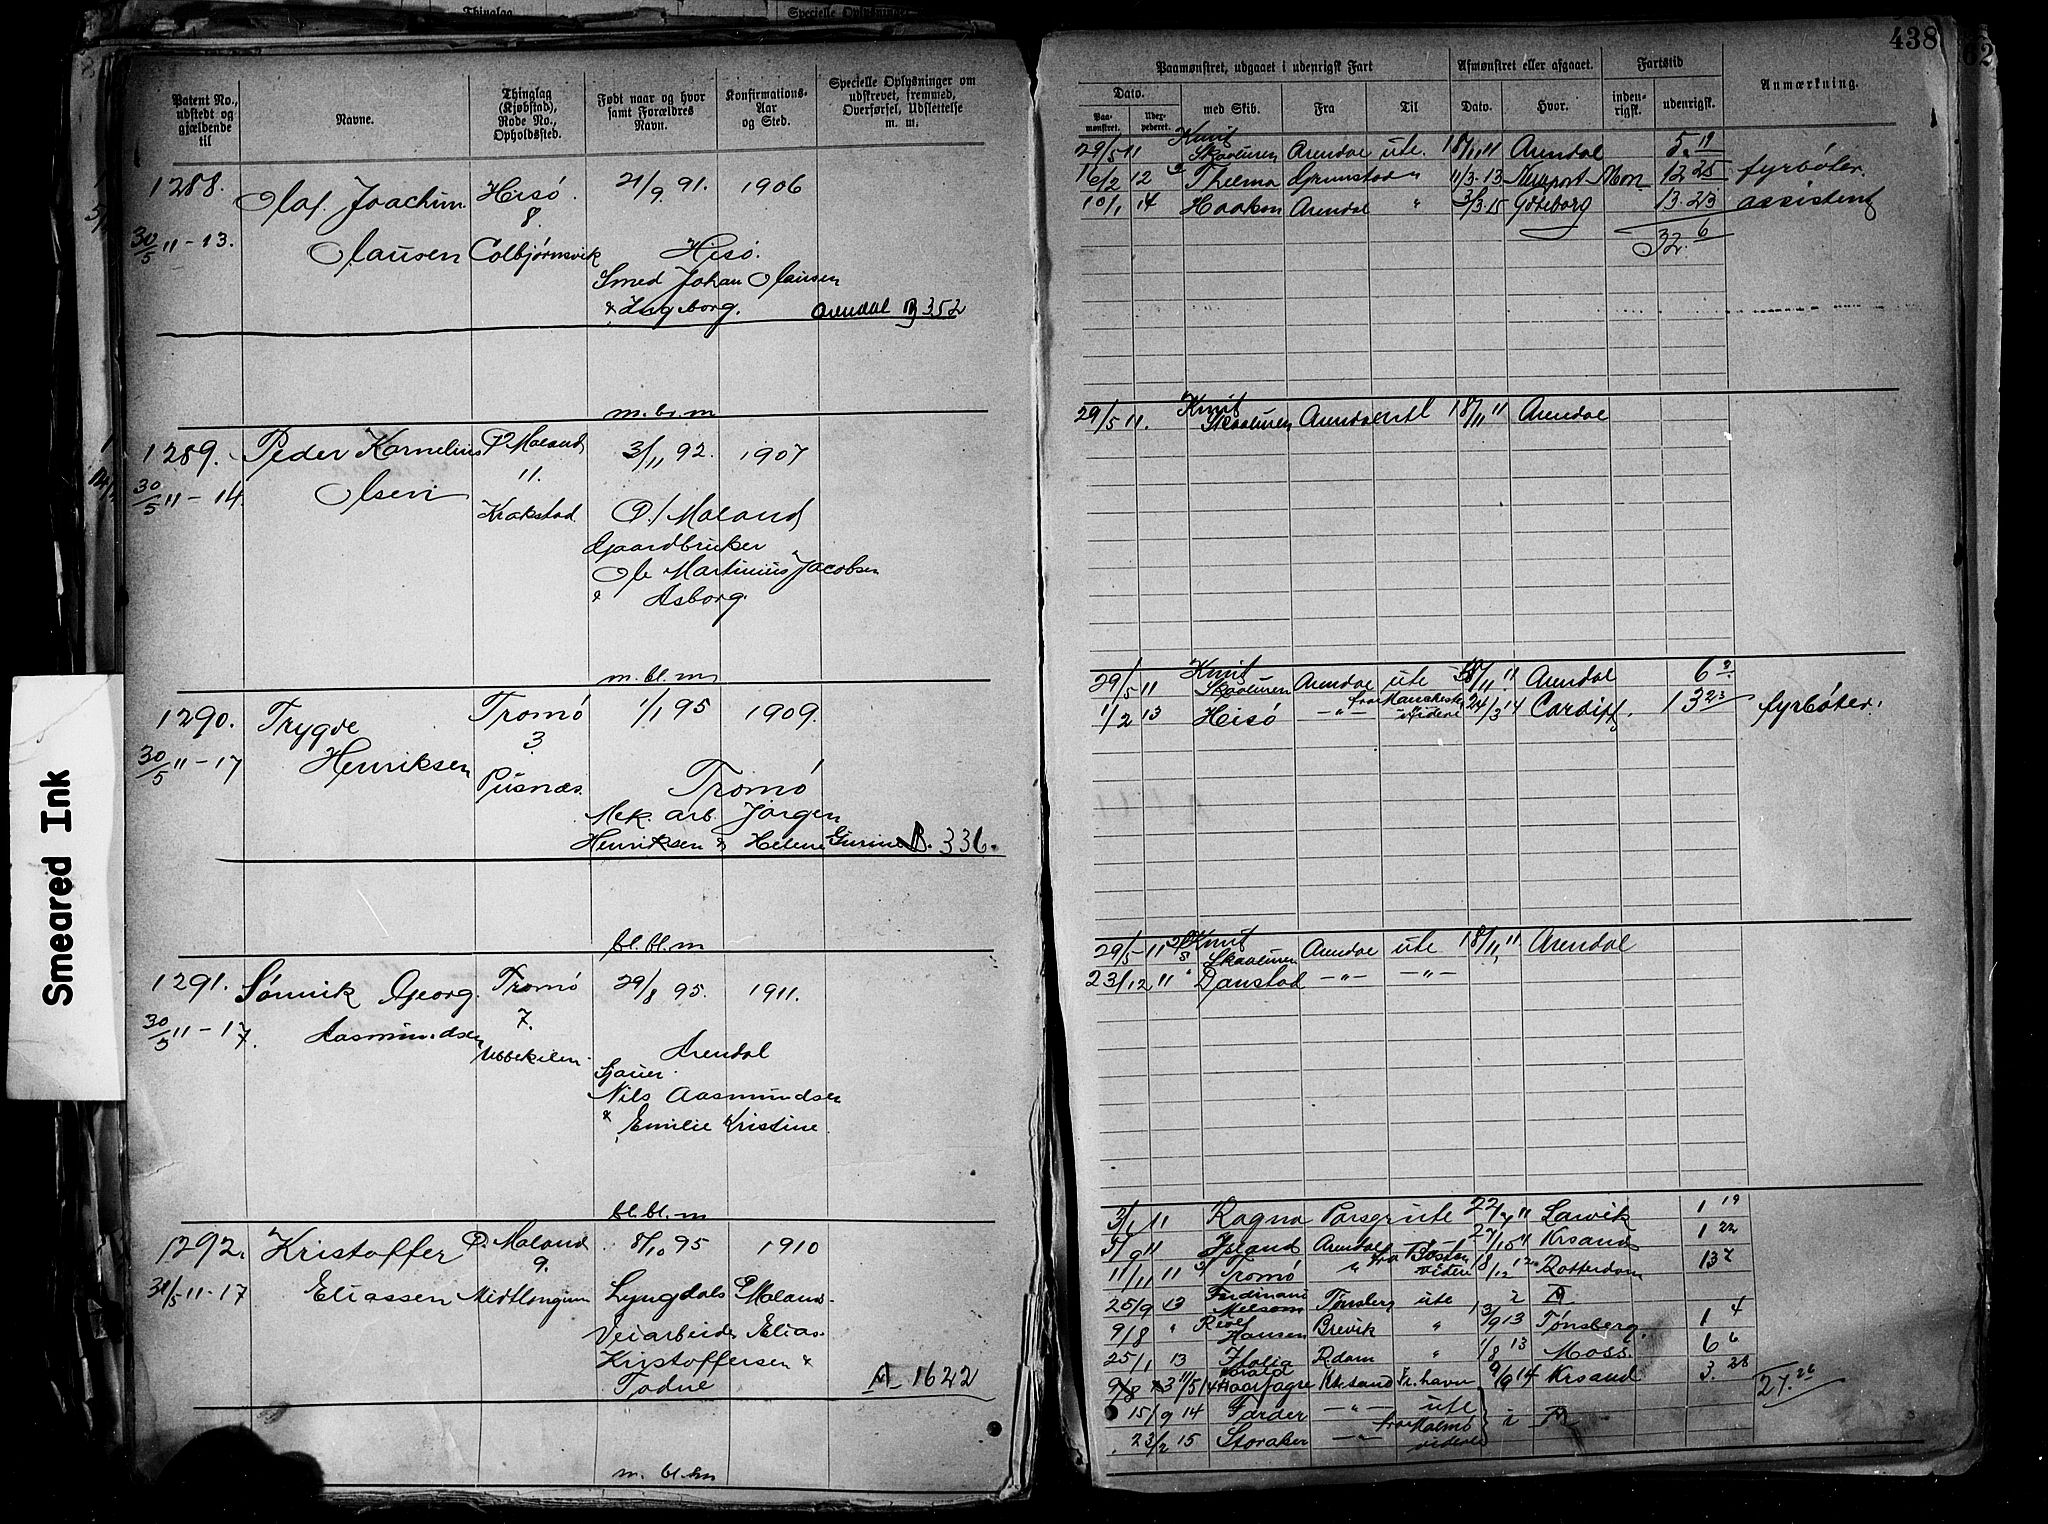 Thinglag
Specielle Oplysninger
438
62
Patent No., udstedt og gjældende til
Navne.
Thinglag (Kjøbstad), Rode No., Opholdssted.
Født naar og hvor samt Forældres Navn.
Konfirmations-Aar og Sted.
Specielle Oplysninger om udskrevet, fremmed, Overførsel, Udslettelse m. m.
Paamønstret, udgaaet i udenrigsk Fart
Afmønstret eller afgaaet.
Fartstid
Anmærkning.
Dato.
Paa-mønstret.
Uderpederet.
med Skib.
Fra
Til
Dato.
Hvor.
inden-rigsk.
udenrigsk.
1288.
Olaf Joachim
Hisö
21/9 91.
1906
8
30/5 11-13.
Clausen
Colbjørnsvik
Hisö.
Smed Johan Clausen
& Ingeborg.
Arendal B 352
29/5 11 Knut Skaaluren Arendal ute. 18/11 11 Arendal 5. 11
16/2 12 Thelma Grimstad " 11/3-13 Newport Mon 12 25 fyrbøter.
10/1 14 Haakon Arendal " 3/3-15 Göteborg 13.23 assistent
32. 6
m. bl. m
1289. Peder Kornelius
Ø Moland
3/11 92.
1907
11.
30/5 11-14.
Olsen
Krakstad
Ø/ Moland
Gaardbruker
Ole Martinius Jacobsen
& Asborg.
29/5 11. Knut Skaaluren Arendal utl 18/11 11 Arendal
m. bl. m
1290. Trygve
Tromö
1/1 95
1909.
3.
30/5 11-17
Henriksen
Pusnæs.
Tromö
Mek. arb. Jörgen
Henriksen & Helene Gurine B. 336.
29/5 11 Knut Skaaluren Arendal ute 18/11 11 Arendal 6 2.
1/2 13 Hisö -"- fra Manchester videre 24/3 14 Cardiff. 13 23 fyrbøter.
bl. bl. m
1291. Sönnik Georg
Tromö
29/8 95.
1911.
7.
30/5 11-17.
Aasmundsen
Ubbekilen
Arendal
Sjauer.
Nils Aasmundsen
& Emilie Kristine.
29/5 11 Knut Skaaluren Arendal ute 18/11 11 Arendal
23/12 11 Danstad -"- -"-
bl. bl. m
1292. Kristoffer
Ø. Moland
8/10 95
1910
9.
31/5 11-17
Eliassen
Midtlongum
Lyngdals
Ø Moland
Veiarbeider Elias
Kristoffersen &
Todne
A 1622
3/1 11 Ragna Porsgr ute 22/4 11 Larvik 1 19
5/9 11 Island Arendal 27/10 11 Krsand 1 22
11/11 11 Tromö " fra Boston videre 18/12 12 Rotterdam 13 7
25/9 13 Ferdinand Melsom Tønsberg ute
9/8 " Rolf Hansen Brevik " 13/9 13 Tønsberg. 1 4
25/1 13 Italia R.dam " 1/8 13 Moss. 6 6
11/5 14 Harald Haarfagre Krsand Fr. havn 9/9 14 Krsand 3. 28
27. 26
15/9 14 Færder -"- ute
23/2 15 Storaker -"- fra Malmö videre
m. bl. m
Smeared Ink